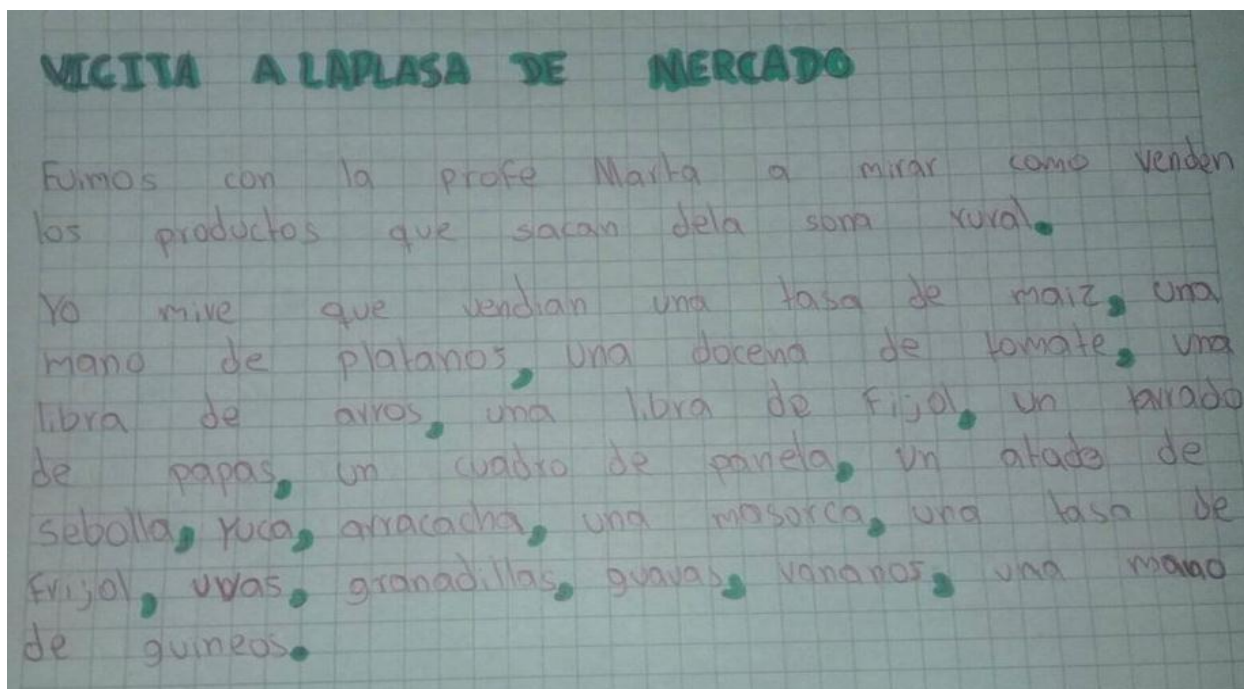 VICITA A LAPLASA DE MERCADO
Fuimos con la profe Marta a mirar como venden
los productos que sacan dela sona rural.
Yo mire que vendian una tasa de maiz, una
mano de platanos, una docena de tomate, una
libra de arros, una libra de fijol, un
de papas, un cuadro de panela, un atado de
sebolla, yuca, arracacha, una masorca, una tasa de
frijol, uvas, granadillas, guavas, vananos, una mano
de guineos.